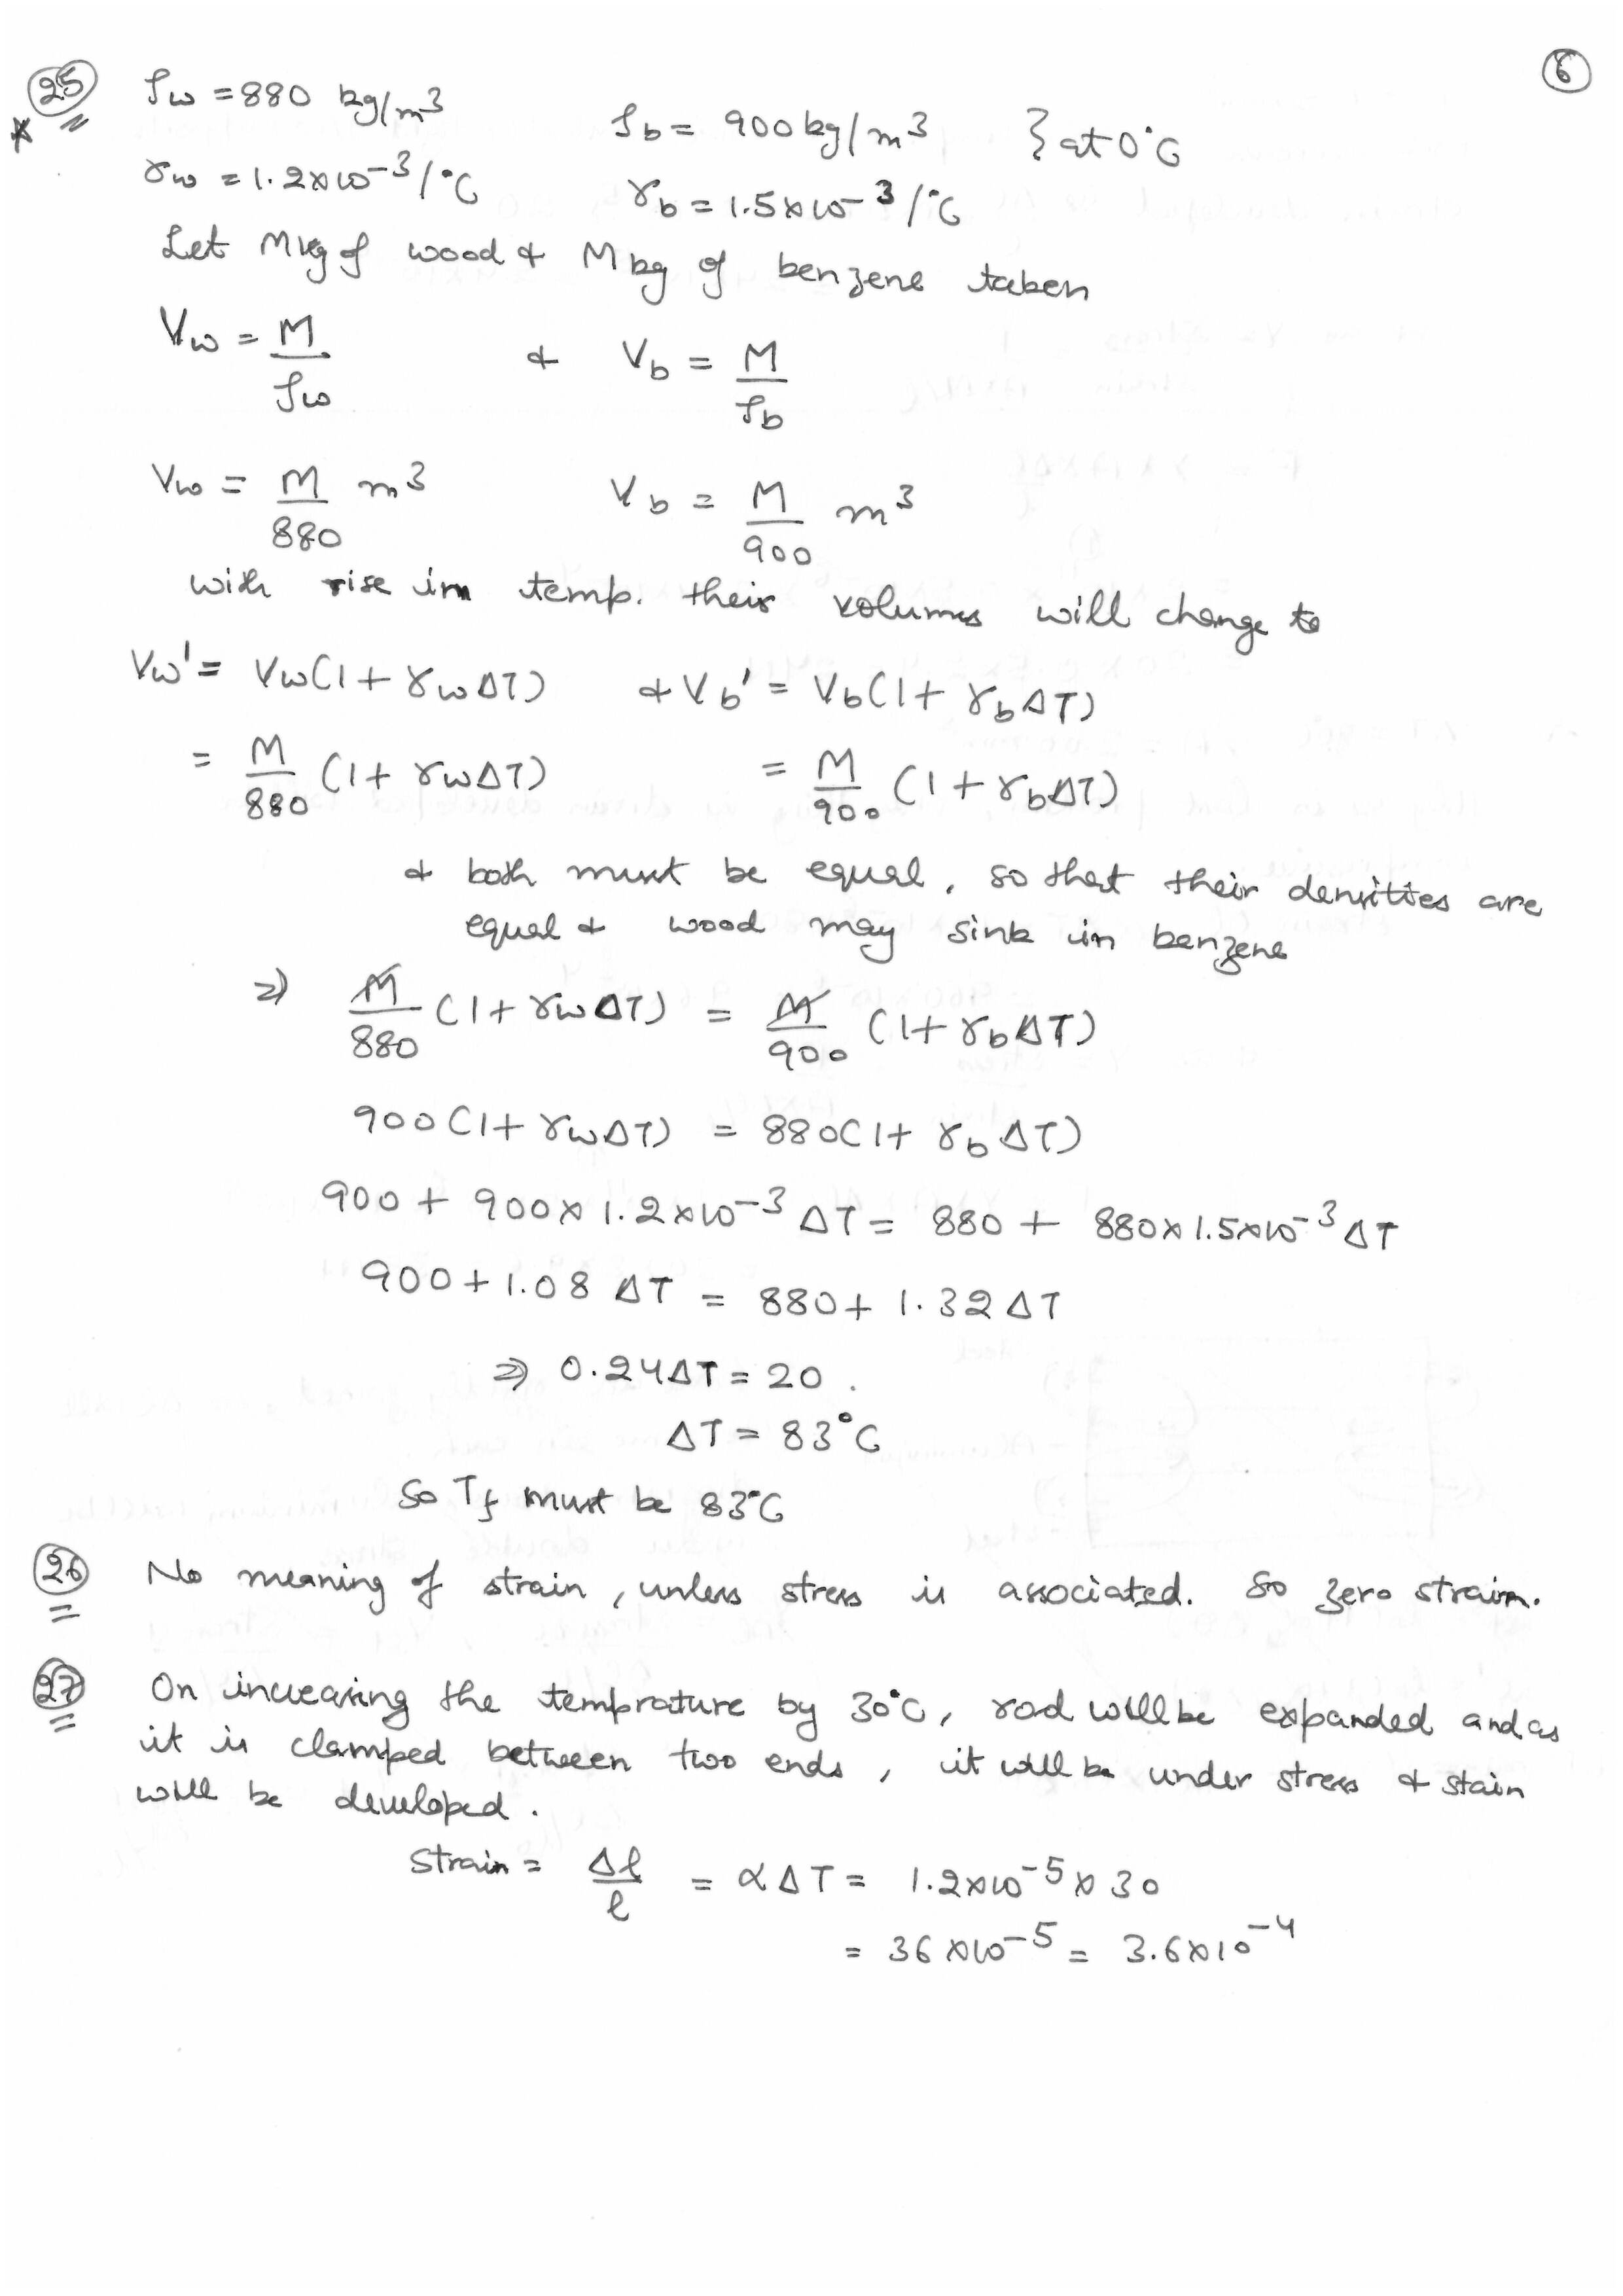 25 ⑥
ρw = 880 kg/m³ ρb = 900 kg/m³ } at 0°C
γw = 1.2×10⁻³/°C γb = 1.5×10⁻³/°C
Let M kg of wood & M kg of benzene taken
Vw = M/ρw & Vb = M/ρb
Vw = M/880 m³ Vb = M/900 m³
with rise in temp. their volumes will change to
Vw' = Vw(1+ γwΔT) & Vb' = Vb(1+ γbΔT)
= M/880 (1+ γwΔT) = M/900 (1+ γbΔT)
& both must be equal, so that their densities are
equal & wood may sink in benzene
⇒ M/880 (1+ γwΔT) = M/900 (1+ γbΔT)
900(1+ γwΔT) = 880(1+ γbΔT)
900 + 900×1.2×10⁻³ ΔT = 880 + 880×1.5×10⁻³ ΔT
900 + 1.08 ΔT = 880 + 1.32 ΔT
⇒ 0.24ΔT = 20.
ΔT = 83°C
So Tf must be 83°C
26 No meaning of strain, unless stress is associated. So zero strain.
27 On increasing the temprature by 30°C, rod will be expanded and as
it is clamped between two ends, it will be under stress & stain
will be developed.
Strain = Δl/l = αΔT = 1.2×10⁻⁵×30
= 36×10⁻⁵ = 3.6×10⁻⁴